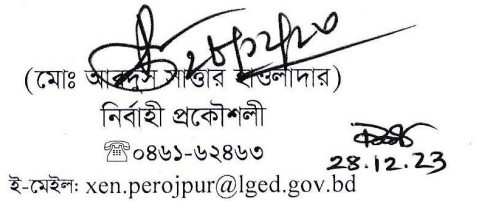 ২৮/১২/২৩
(মোঃ আবদুস সাত্তার হাওলাদার)
নির্বাহী প্রকৌশলী
☎০৪৬১-৬২৪৬৩
28.12.23
ই-মেইল: xen.perojpur@lged.gov.bd